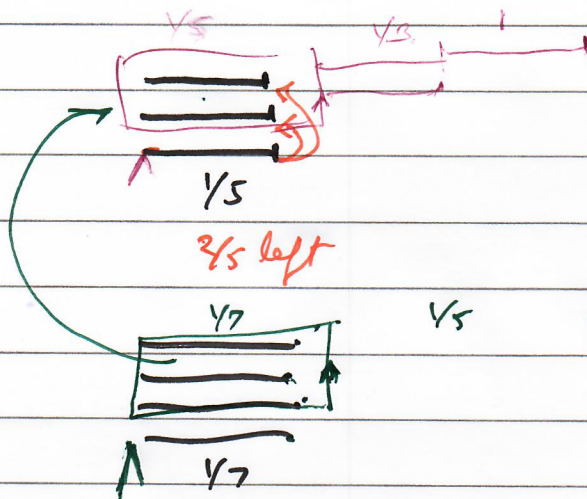 1/5 1/3 1
1/5
2/5 left
1/7 1/5
1/7